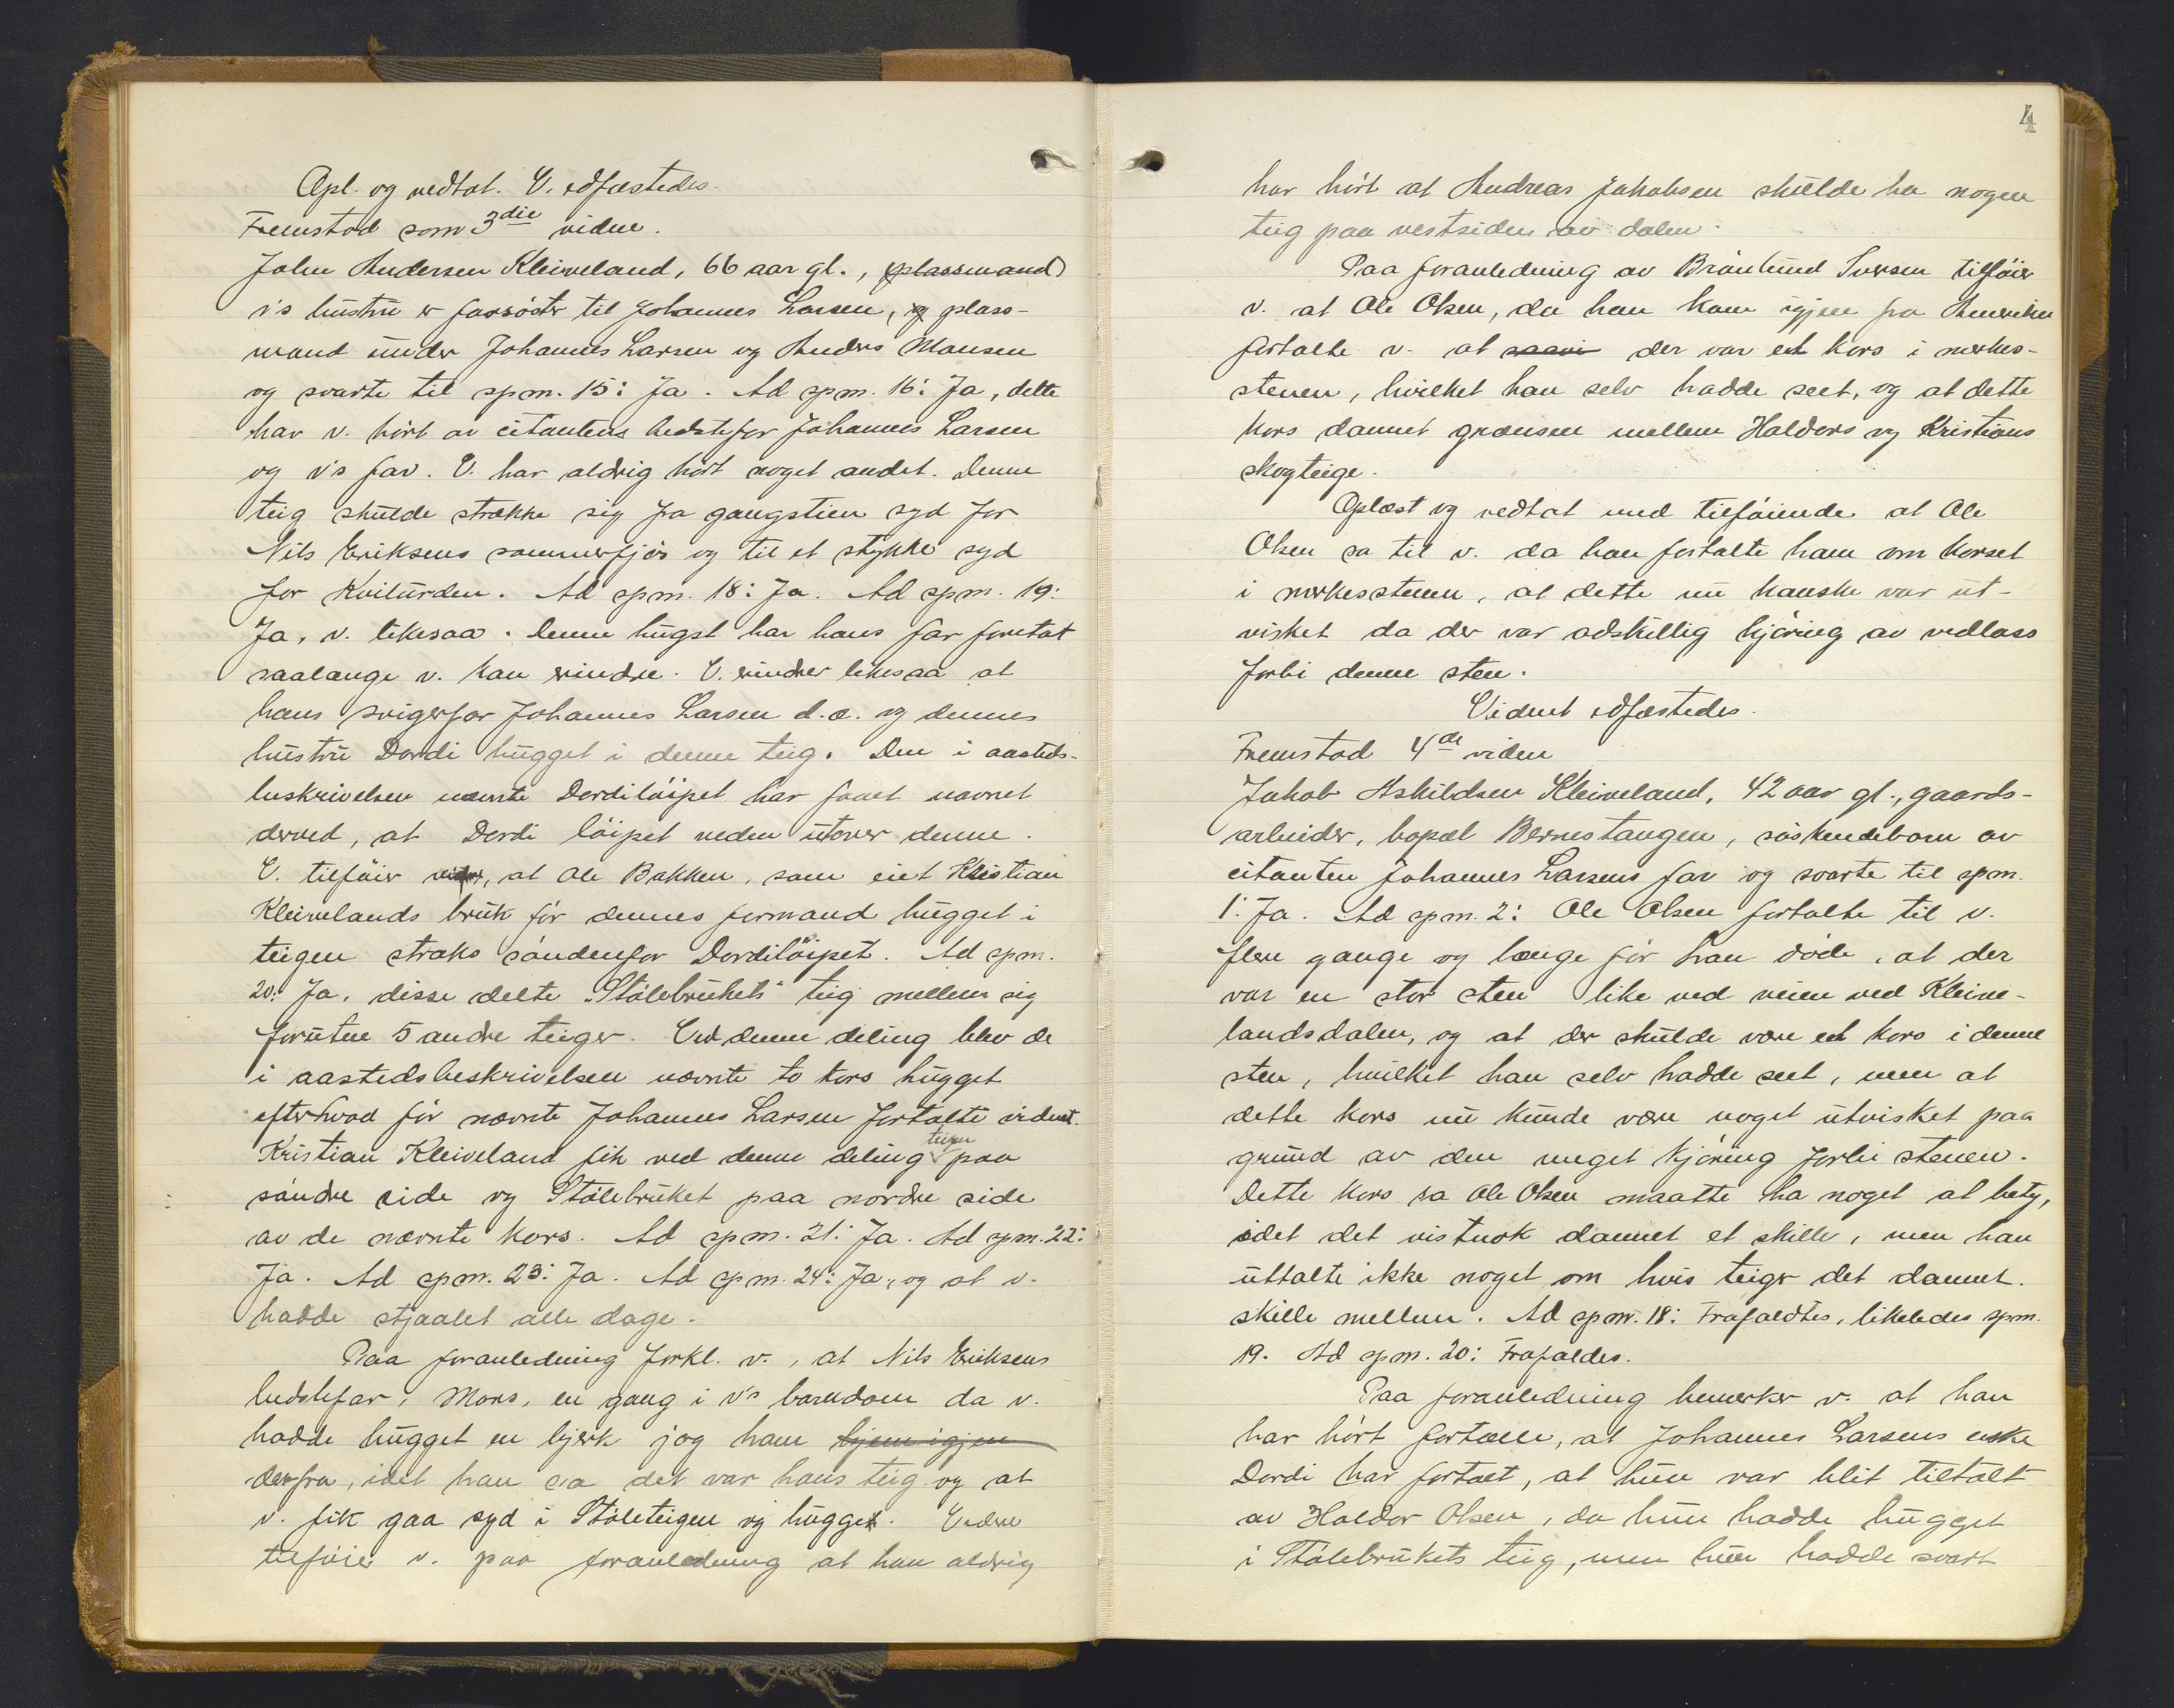 Opl. og vedtat. V. edfæstedes.
Fremstod som 3die vidne.
John Andersen Kleiveland, 66 aar gl., (plassmand)
v's hustru er farsöster til Johannes Larsen, og plass-
mand under Johannes Larsen og Anders Monsen
og svarte til spm. 15: Ja. Ad spm. 16: Ja, dette
har v. hört av citantens bedstefar Johannes Larsen
og v's far. V. har aldrig hört noget andet. Denne
teig skulde strække sig fra gangstien syd for
Nils Eriksens sommerfjös og til et stykke syd
for Kviturden. Ad spm. 18: Ja. Ad spm. 19:
Ja, v. likesaa. Denne hugst har hans far foretat
saalænge v. kan erindre. V. erindrer likesaa at
hans svigerfar Johannes Larsen d.æ. og dennes
hustru Dordi hugget i denne teig. Den i aasteds-
beskrivelsen nævnte Dordilöipet har faaet navnet
derved, at Dordi löipet veden utover denne.
V. tilföier videre, at Ole Bakken, som eiet Kristian
Kleivelands bruk för dennes formand hugget i
teigen straks söndenfor Dordilöipet. Ad spm.
20: Ja, disse delte "Stölebrukets" teig mellem sig
foruten 5 andre teiger. Ved denne deling blev de
i aastedsbeskrivelsen nævnte to kors hugget
efterhvad för nævnte Johannes Larsen fortalte vidnet.
Kristian Kleiveland fik ved denne deling teigen paa
söndre side og Stölebruket paa nordre side
av de nævnte kors. Ad spm. 21: Ja. Ad spm. 22:
Ja. Ad spm. 23: Ja. Ad spm. 24: Ja, og at v.
hadde stjaalet alle dage.
Paa foranledning forkl. v., at Nils Eriksens
bedstefar, Mons, en gang i v's barndom da v.
hadde hugget en bjerk jog ham hjem igjen
derfra, idet han sa det var hans teig og at
v. fik gaa syd i Stöleteigen og hugget. Endvu
tilföier v. paa foranledning at han aldrig
4
har hört at Andreas Jakobsen skulde ha nogen
teig paa vestsiden av dalen.
Paa foranledning av Brönlund Iversen tilföier
v. at Ole Olsen, da han kom igjen fra Amerika
fortalte v. at der var et kors i merkes-
stenen, hvilket han selv hadde seet, og at dette
kors dannet grænsen mellem Haldors og Kristians
skogteige.
Oplæst og vedtat med tilföiende at Ole
Olsen sa til v. da han fortalte ham om korset
i merkesstenen, at dette nu kanske var ut-
visket da der var adskillig kjöring av vedlass
forbi denne sten.
Vidnet edfæstedes.
Fremstod 4de vidne
Jakob Askildsen Kleiveland, 42 aar gl., gaards-
arbeider, bopæl Bernestangen, söskendebarn av
citanten Johannes Larsens far og svarte til spm.
1: Ja. Ad spm. 2: Ole Olsen fortalte til v.
flere gange og længe för han döde, at der
var en stor sten like ved veien ved Kleive-
landsdalen, og at der skulde være et kors i denne
sten, hvilket han selv hadde seet, men at
dette kors nu kunde være noget utvisket paa
grund av den meget kjöring forbi stenen.
Dette kors sa Ole Olsen maatte ha noget at bety,
idet det vistnok dannet et skille, men han
uttalte ikke noget om hvis teiger det dannet
skille mellem. Ad spm. 18: Frafaldtes, likeledes spm.
19. Ad spm. 20: Frafaldes.
Paa foranledning bemerker v. at han
har hört fortælle, at Johannes Larsens enke
Dordi har fortalt, at hun var blit tiltalt
av Haldor Olsen, da hun hadde hugget
i Stölebrukets teig, men hun hadde svart